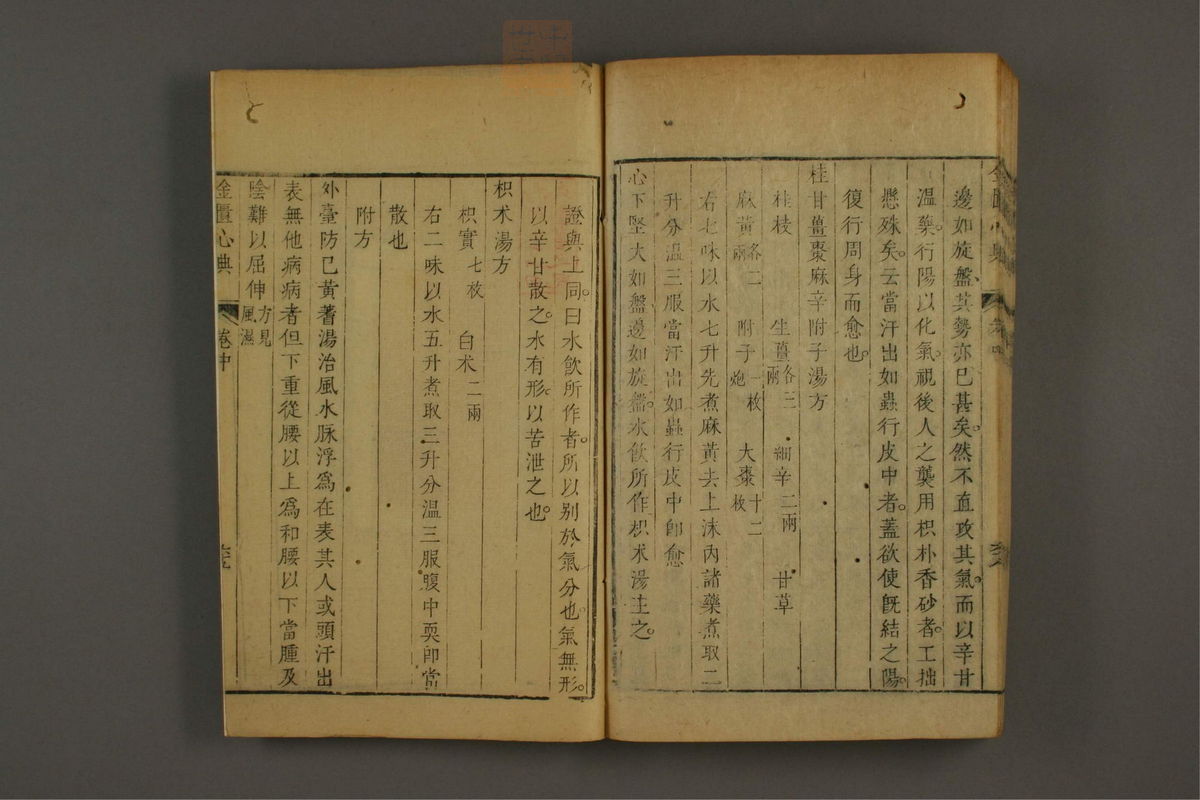 邊如旋盤其勢亦已甚矣然不直攻其氣而以辛甘
温藥行陽以化氣視後人之襲用枳朴香砂者工拙
懸殊矣云當汗出如蟲行皮中者蓋欲使既結之陽
復行周身而愈也
桂甘薑棗麻辛附子湯方
桂枝 生薑各三兩 細辛二兩 甘草
麻黃各二兩 附子一枚炮 大棗十二枚
右七味以水七升先煮麻黃去上沫內諸藥煮取二
升分温三服當汗出如蟲行皮中卽愈
心下堅大如盤邊如旋盤水飮所作枳朮湯主之
證與上同曰水飮所作者所以别於氣分也氣無形
以辛甘散之水有形以苦泄之也
枳朮湯方
枳實七枚 白朮二兩
右二味以水五升煮取三升分温三服腹中耎卽當
散也
附方
外臺防已黃蓍湯治風水脉浮爲在表其人或頭汗出
表無他病病者但下重從腰以上爲和腰以下當腫及
陰難以屈伸方見風濕
金匱心典 卷中